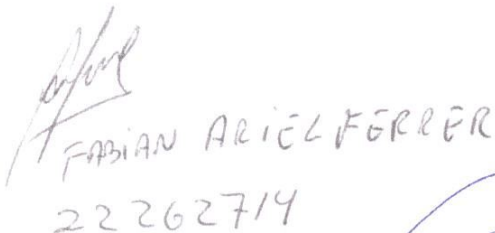 FABIAN ARIEL FERRER
22262714